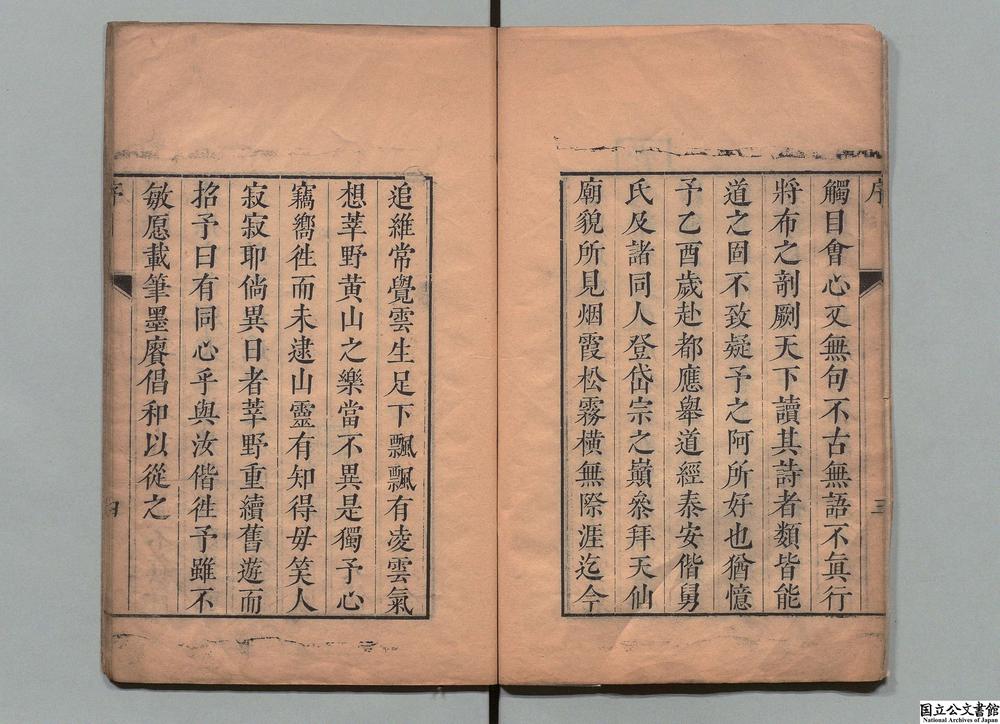 序
三
觸目會心又無句不古無語不眞行
將布之剞劂天下讀其詩者類皆能
道之固不致疑予之阿所好也猶憶
予乙酉歲赴都應舉道經泰安偕舅
氏及諸同人登岱宗之巔叅拜天仙
廟貌所見烟霞松霧橫無際涯迄今
追維常覺雲生足下飄飄有凌雲氣
想莘野黄山之樂當不異是獨予心
竊嚮徃而未逮山靈有知得毋笑人
寂寂耶倘異日者莘野重續舊遊而
招予曰有同心乎與汝偕徃予雖不
敏愿載筆墨賡倡和以從之
序
四
国立公文書館
National Archives of Japan